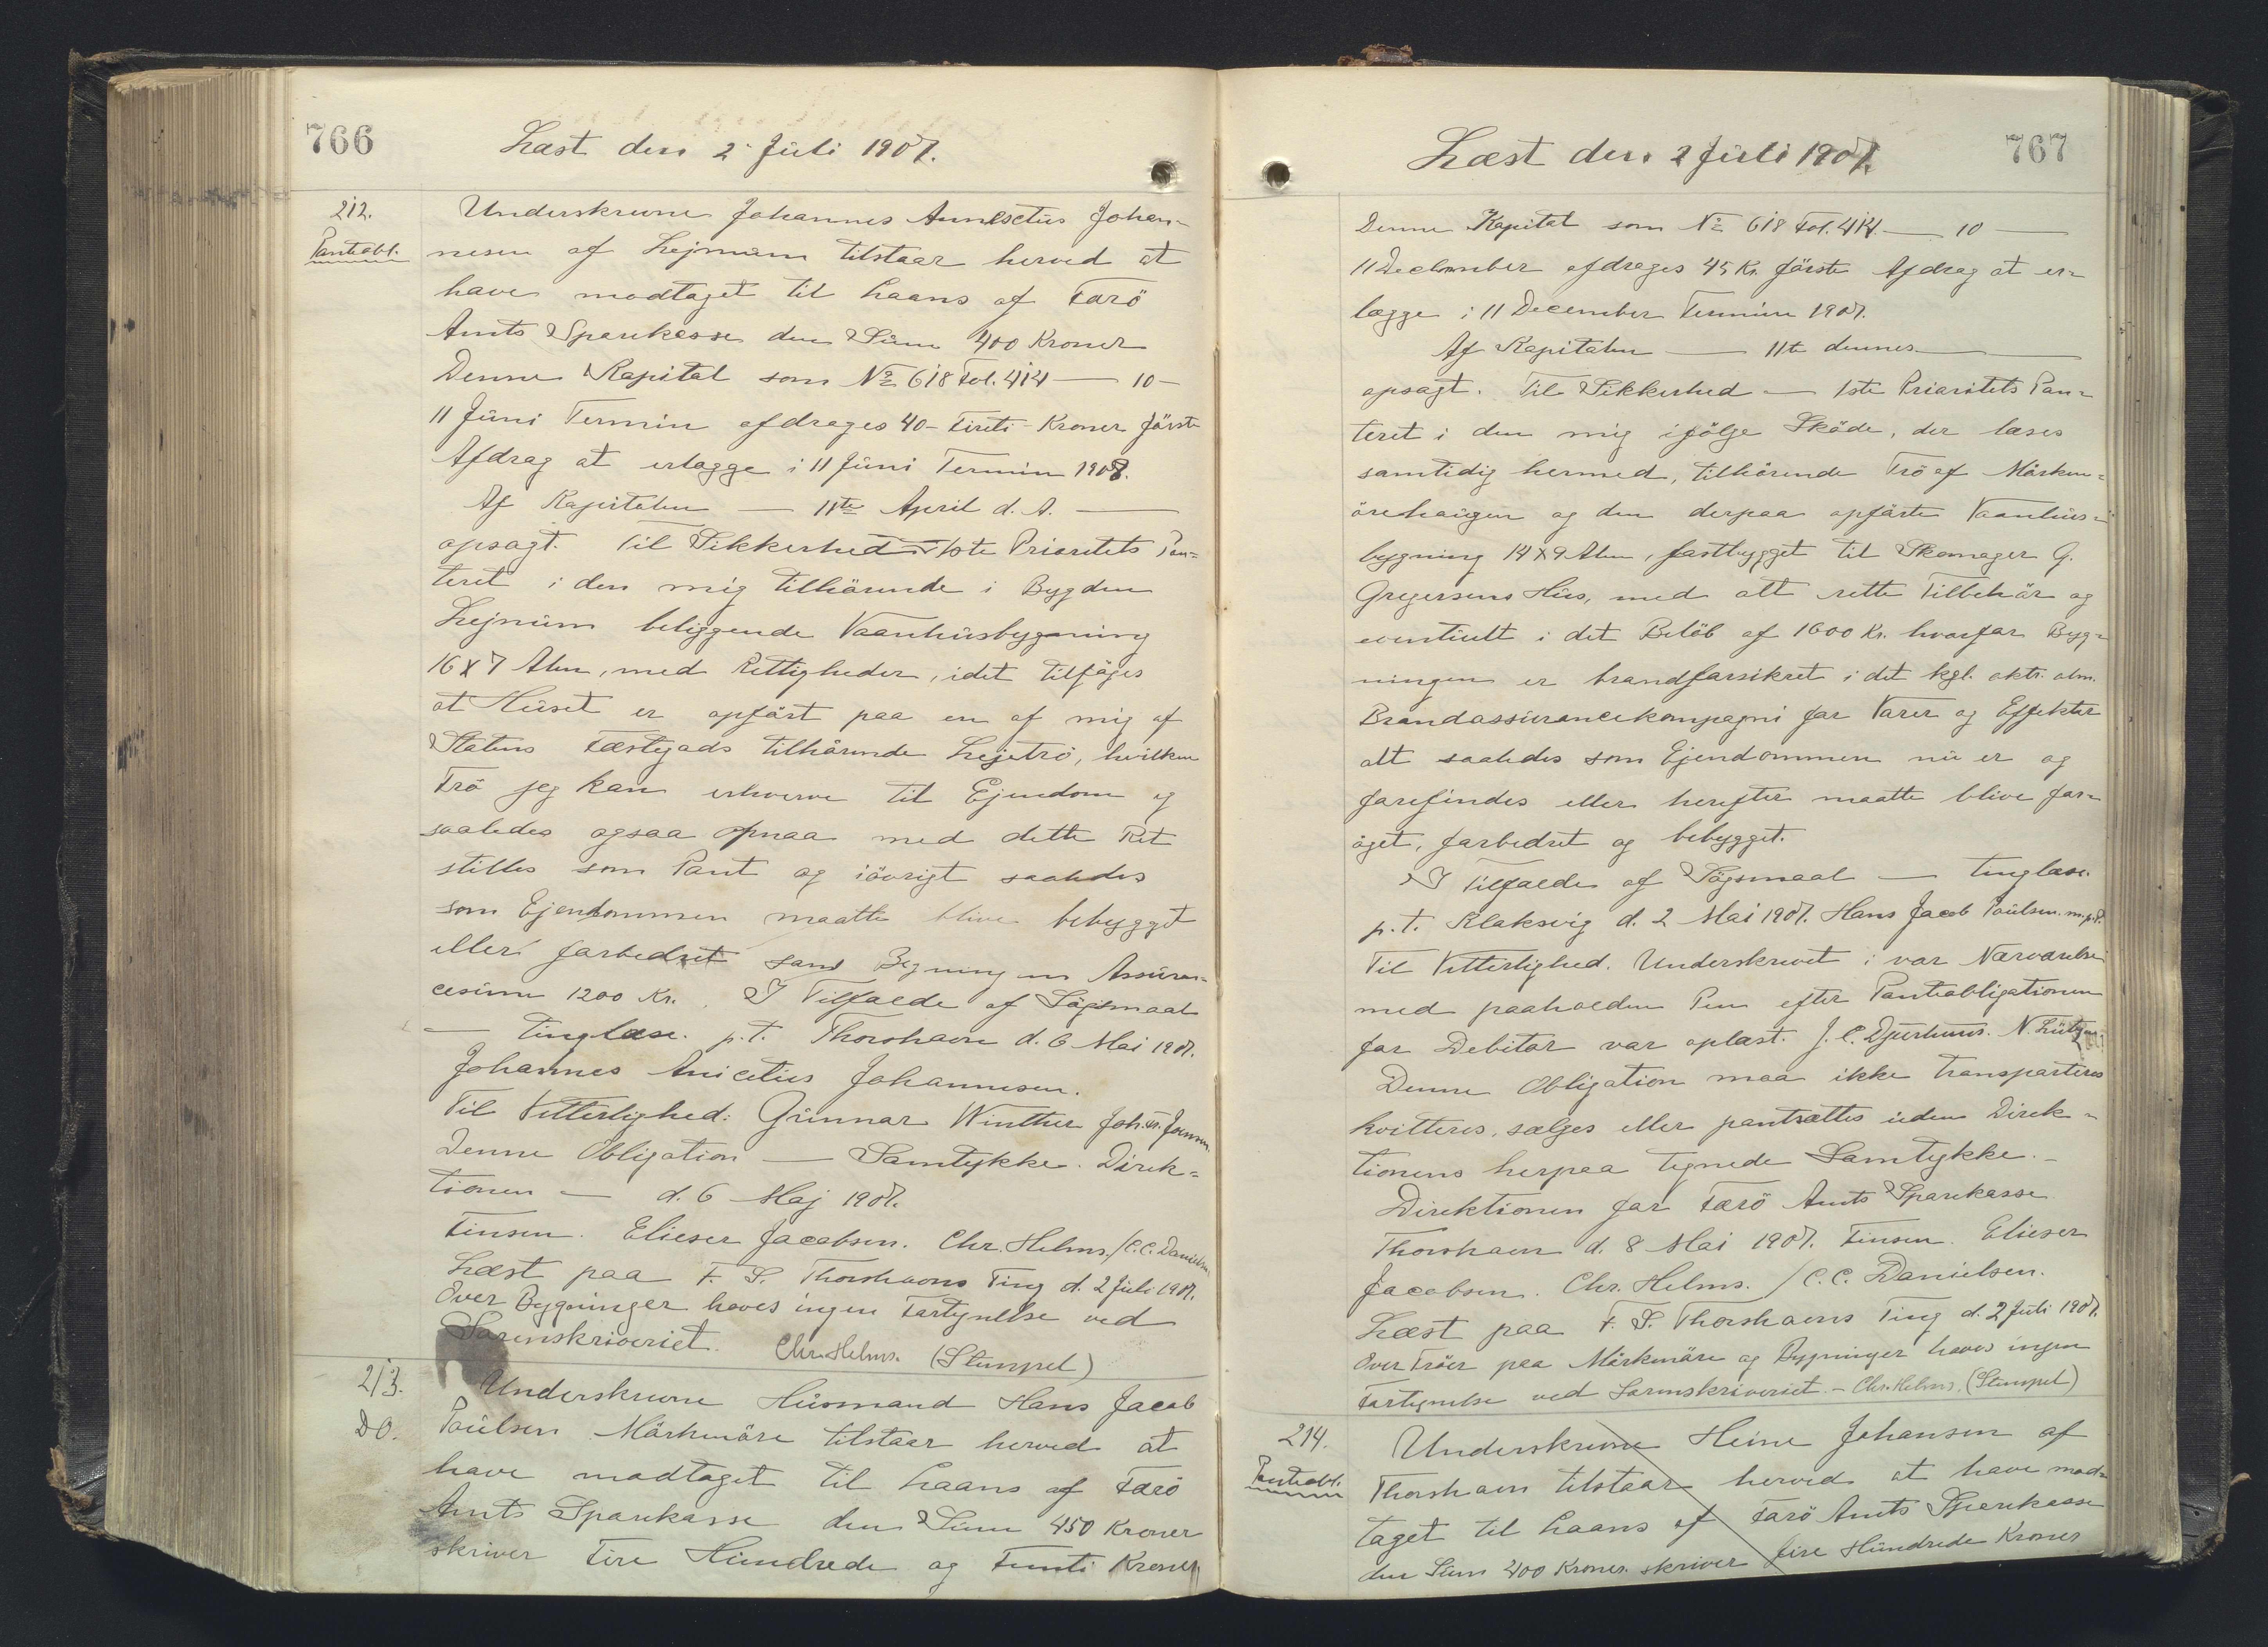 766
Læst den 2 Juli 1907.
212.
Panteobl.
Underskrevne Johannes Annisetus Johan-
nesen af Lejnum tilstaar herved at
have modtaget til Laans af Færö
Amts Sparekasse den Sum 400 Kroner
Denne Kapital som No 618 Fol. 414 — 10 —
11 Juni Termin afdrages 40 - Fireti - Kroner förste
Afdrag at erlægge i 11 Juni Termin 1908.
Af Kapitalen — 11te April d. A. —
opsagt. Til Sikkerhed — 1ste Prioritets Pan-
teret i den mig tilhörende i Bygden
Lejnum beliggende Vaanhusbygning
16 X 7 Alen, med Rettigheder, idet tilföjes
at Huset er opfört paa en af mig af
Statens Fæstegods tilhörende Lejetrö, hvilken
Trö jeg kan erhverve til Ejendom og
saaledes ogsaa opnaa med dette Ret
stilles som Pant og iövrigt saaledes
som Ejendommen maatte blive bebygget
eller forbedret samt Bygningens Assuran-
cesum 1200 Kr. I Tilfælde af Sögsmaal
— tinglæse. p.t. Thorshavn d. 6 Mai 1907.
Johannes Anicetius Johannesen.
Til Vitterlighed: Gunnar Winther Joh. M. Joensen.
Denne Obligation — Samtykke. Direk-
tionen — d. 6 Maj 1907.
Finsen. Elieser Jacobsen. Chr. Helms. / C.C. Danielsen.
Læst paa F. S. Thorshavns Ting d. 2 Juli 1907.
Over Bygninger haves ingen Fortegnelse ved
Sorenskriveriet. Chr. Helms. (Stempel)
213.
DO.
Underskrevne Husmand Hans Jacob
Poulsen Mörkenöre tilstaar herved at
have modtaget til Laans af Færö
Amts Sparekasse den Sum 450 Kroner
skriver Fire Hundrede og Femti Kroner
Læst den 2 Juli 1907.
767
Denne Kapital som No 618 Fol. 414. — 10 —
11 December afdrages 45 Kr. förste Afdrag at er-
lægge i 11 December Termin 1907.
Af Kapitalen — 11te dennes —
opsagt. Til Sikkerhed — 1ste Prioritets Pan-
teret i den mig ifölge Sköde, der læses
samtidig hermed, tilhörende Trö af Mörken-
örehaugen og den derpaa opförte Vaanhus-
bygning 14 X 9 Alen, fastbygget til Skomager G.
Gregersens Hus, med alt rette Tilbehör og
eventuelt i det Belöb af 1600 Kr. hvorfor Byg-
ningen er brandforsikret i det kgl. oktr. alm.
Brandassurancekompagni for Varer og Effekter
alt saaledes som Ejendommen nu er og
forefindes eller herefter maatte blive for-
öget, forbedret og bebygget.
I Tilfælde af Sögsmaal — tinglæse.
p.t. Klaksvig d. 2 Mai 1907. Hans Jacob Poulsen m.p.P.
Til Vitterlighed. Underskrevet i vor Nærværelse
med paaholden Pen efter Panteobligationen
for Debitor var oplæst. J. C. Djurhuus. N. Lützen.
Denne Obligation maa ikke transporteres
kvitteres, sælges eller pantsættes uden Direk-
tionens herpaa tegnede Samtykke. -
Direktionen for Færö Amts Sparekasse
Thorshavn d. 8 Mai 1907. Finsen. Elieser
Jacobsen. Chr. Helms. / C.C. Danielsen.
Læst paa F. S. Thorshavns Ting d. 2 Juli 1907.
Over Tröer paa Mörkenöre og Bygninger haves ingen
Fortegnelse ved Sorenskriveriet. - Chr. Helms. (Stempel)
214.
Panteobl.
Underskrevne Heine Johansen af
Thorshavn tilstaar herved at have mod-
taget til Laans af Færö Amts Sparekasse
den Sum 400 Kroner. skriver fire Hundrede Kroner